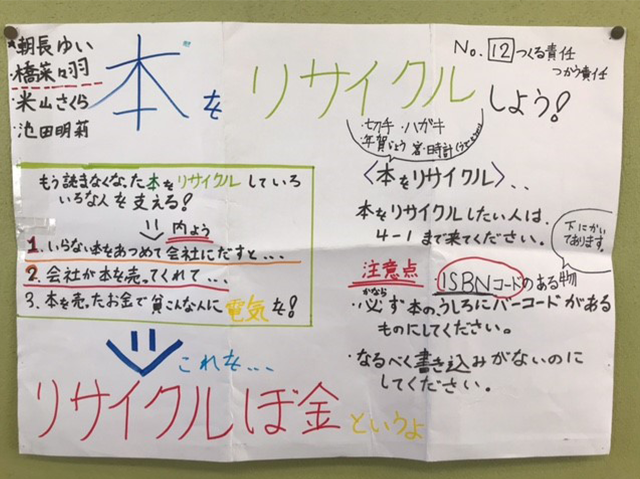 朝長ゆい
橋菜々羽
米山さくら
池田明莉
本をリサイクルしよう!
No.12つくる責任
つかう責任
・切手・ハガキ
・年賀じょう 時計
もう読まなくなった本をリサイクルしていろ
いろな人を支える!
内よう
1.いらない本をあつめて会社にだすと、...
2.会社が本を売ってくれて、...
3.本を売ったお金で貧こんな人に電気を!
これを...
リサイクルぼ金というよ
〈本をリサイクル〉..
本をリサイクルしたい人は、
4-1まで来てください。
下にかい
てあります。
注意点
・ISBNコードのある物
かなら
・必ず本のうしろにバーコードがある
ものにしてください。
・なるべく書き込みがないのに
してください。